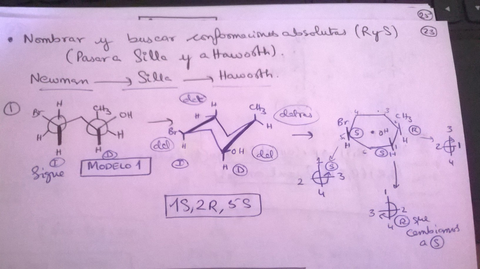 23
• Nombrar y buscar conformaciones absolutas (R y S)
(Pasar a Silla y a Haworth).
23
Newman → Silla → Haworth.
1
H H CH3 OH Br H H H H H
I D
Sigue MODELO 1
del H CH3 H detras Br H OH H del I D
Br 4 S CH3 OH S S H H R 3 1 2 4
2 1 S 3 4
1 3 2 4 R que cambiamos a S
1S, 2R, 5S